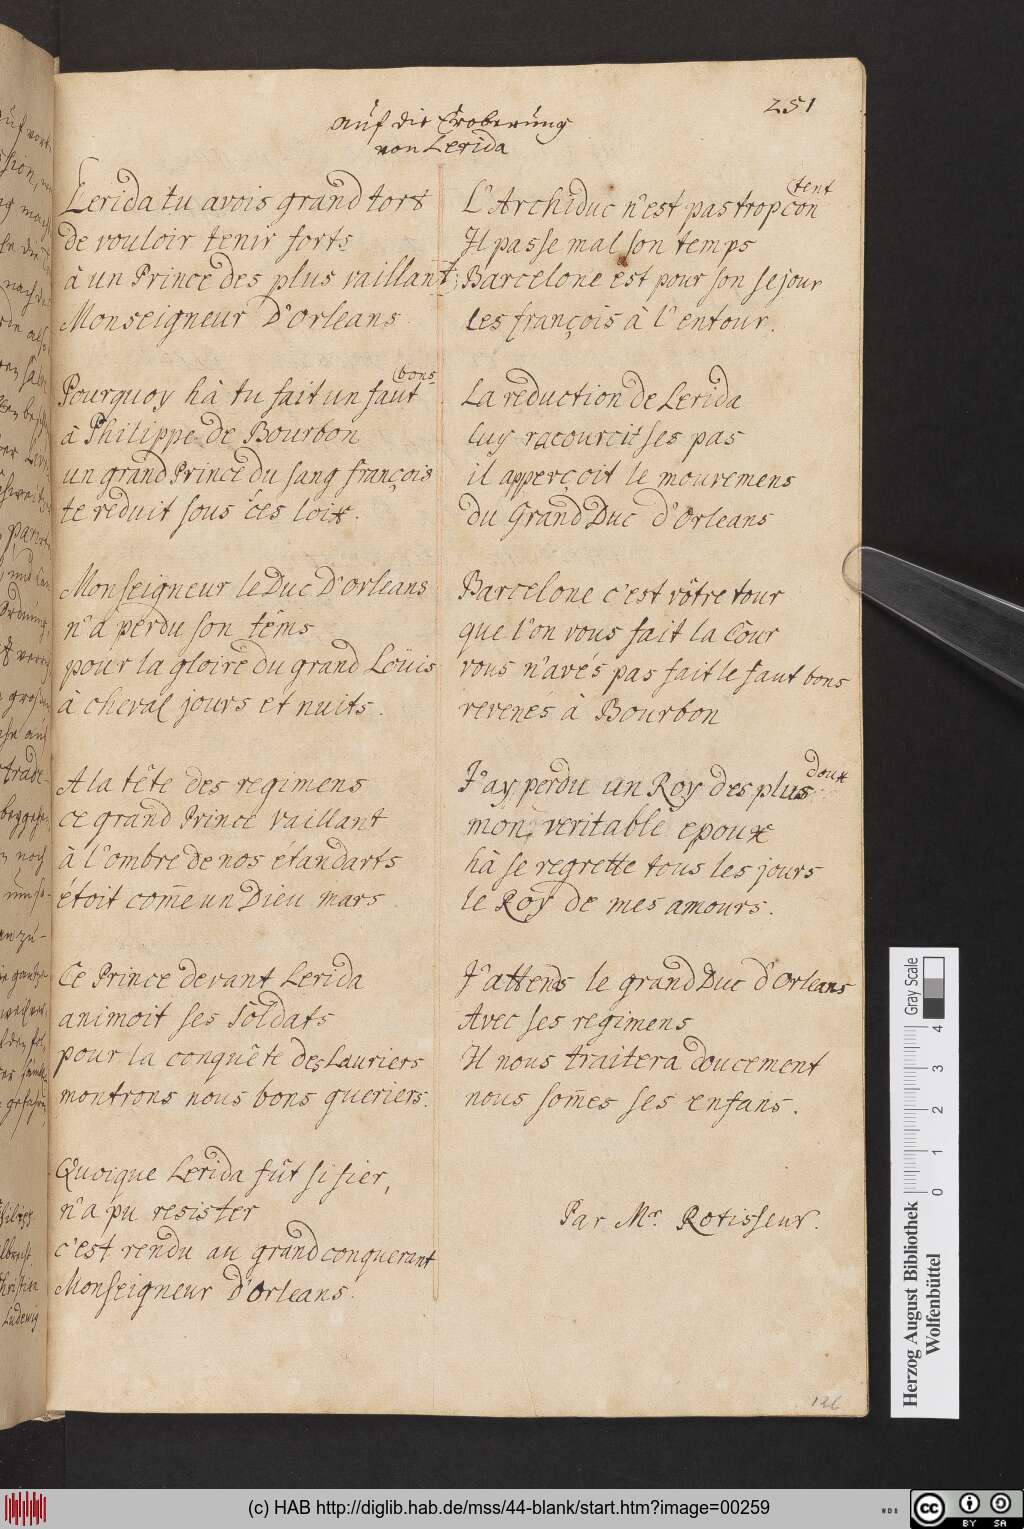 251
auf die Eroberung
von Lerida
Lerida tu avois grand tort
de vouloir tenir forts
à un Prince des plus vaillant
Monseigneur D'Orleans.
Pourquoy hà tu fait un faut
bons
à Philippe de Bourbon
un grand Prince du sang françois
te reduit sous ces loix.
Monseigneur le Duc D'Orleans
n'a perdu son téms
pour la gloire du grand Loüis
à cheval jours et nuits.
A la tête des regimens
ce grand Prince vaillant
à l'ombre de nos étandarts
étoit com̄e un Dieu mars
Ce Prince devant Lerida
animoit ses Soldats
pour la conquête des Lauriers
montrons nous bons gueriers.
Quoique Lerida fût si fier,
n'a pu resister
c'est rendu au grand conquerant
Monseigneur d'Orleans.
L'Archiduc n'est pas trop con
tent
Il passe mal son temps
Barcelone est pour son sejour
les françois à l'entour.
La reduction de Lerida
luy racourcit ses pas
il apperçoit le mouvemens
du Grand Duc d'Orleans
Barcelone c'est vôtre tour
que l'on vous fait la Cour
vous n'avés pas fait le faut bons
revenés à Bourbon
J'ay perdu un Roy des plus
doux
mon veritable epoux
hà je regrette tous les jours
le Roy de mes amours.
J'attends le grand Duc d'Orleans
Avec ses regimens
Il nous traitera doucement
nous som̄es ses enfans.
Par Mr. Rotisseur.
126
Herzog August Bibliothek
Wolfenbüttel
Gray Scale
0 1 2 3 4
(c) HAB http://diglib.hab.de/mss/44-blank/start.htm?image=00259
cc BY SA